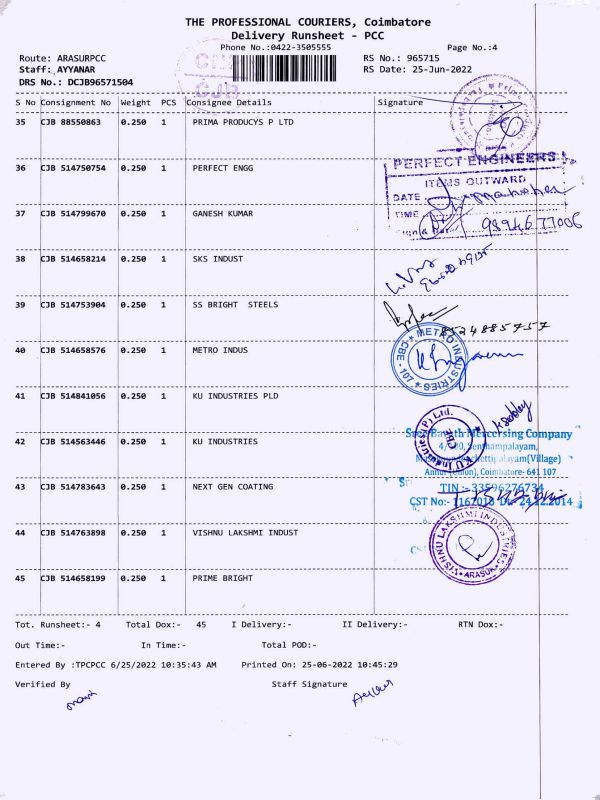 THE PROFESSIONAL COURIERS, Coimbatore
Delivery Runsheet - PCC
Phone No.:0422-3505555 Page No.:4
Route: ARASURPCC RS No.: 965715
Staff: AYYANAR RS Date: 25-Jun-2022
DRS No.: DCJB96571504
CJB
S No Consignment No Weight PCS Consignee Details Signature
35 CJB 88550863 0.250 1 PRIMA PRODUCYS P LTD
PERFECT ENGINEERS
36 CJB 514750754 0.250 1 PERFECT ENGG
ITEMS OUTWARD
DATE
TIME
37 CJB 514799670 0.250 1 GANESH KUMAR
9894677006
38 CJB 514658214 0.250 1 SKS INDUST
39 CJB 514753904 0.250 1 SS BRIGHT STEELS
8524885757
40 CJB 514658576 0.250 1 METRO INDUS
METRO INDUSTRIES CBE - 107
41 CJB 514841056 0.250 1 KU INDUSTRIES PLD
42 CJB 514563446 0.250 1 KU INDUSTRIES
Mercersing Company
Senthampalayam,
(Village)
Coimbatore- 641 107
43 CJB 514783643 0.250 1 NEXT GEN COATING
TIN :- 33596276734
CST No:- 1167018 24.12.2014
44 CJB 514763898 0.250 1 VISHNU LAKSHMI INDUST
VISHNU LAKSHMI INDUSTRIES ARASUR
45 CJB 514658199 0.250 1 PRIME BRIGHT
Tot. Runsheet:- 4 Total Dox:- 45 I Delivery:- II Delivery:- RTN Dox:-
Out Time:- In Time:- Total POD:-
Entered By :TPCPCC 6/25/2022 10:35:43 AM Printed On: 25-06-2022 10:45:29
Verified By Staff Signature